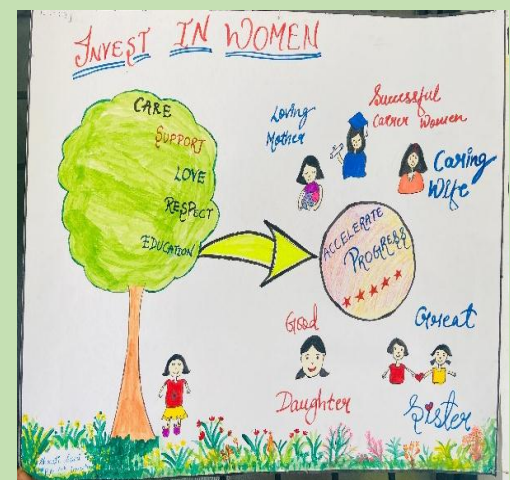 INVEST IN WOMEN
CARE
SUPPORT
LOVE
RESPECT
EDUCATION
Loving
Mother
Successful
Career Women
Caring
Wife
ACCELERATE
PROGRESS
Good
Daughter
Great
Sister